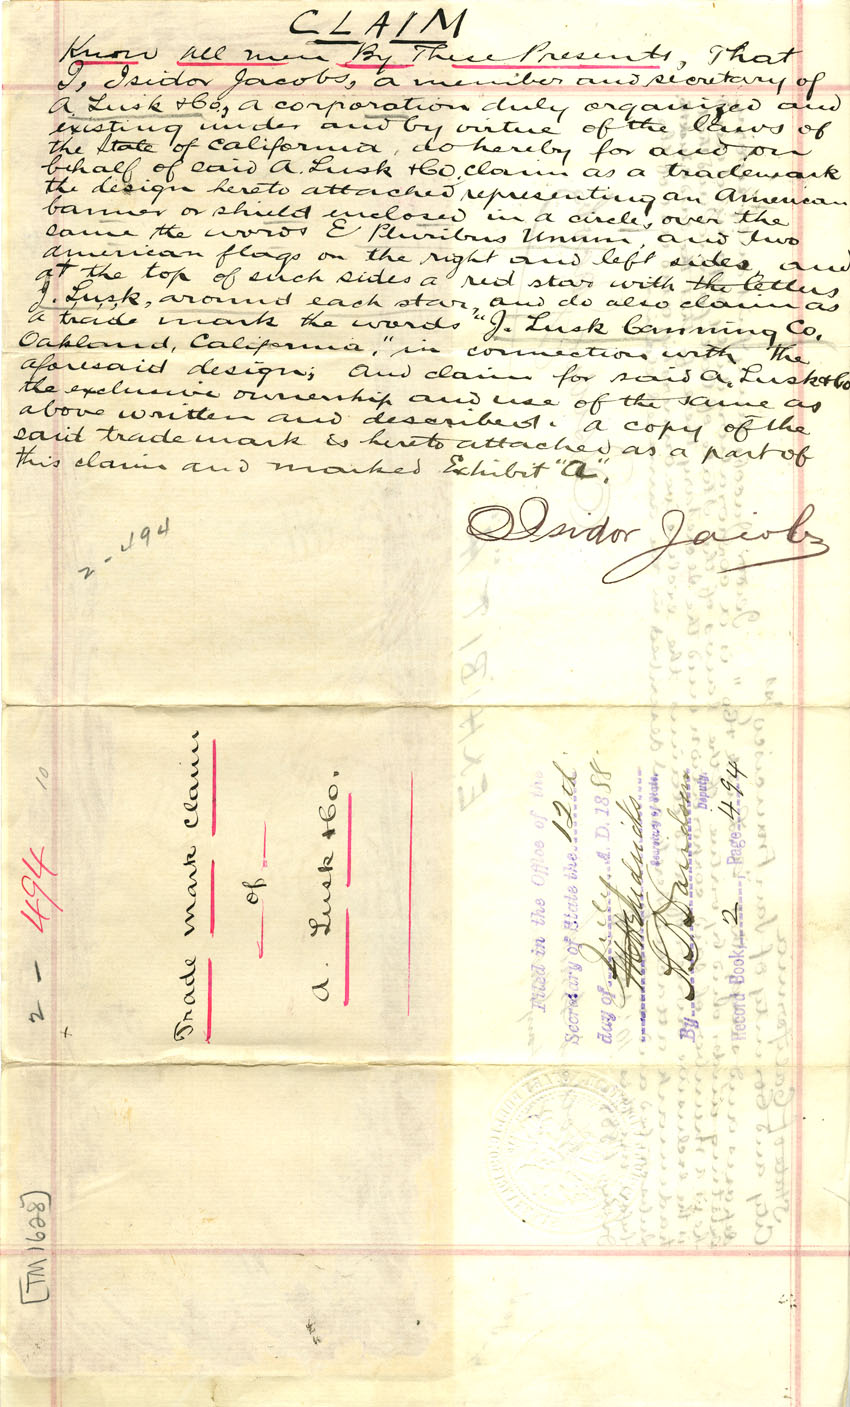 CLAIM
Know all men By These Presents, That
I, Isidor Jacobs, a member and secretary of
A. Lusk & Co, a corporation duly organized and
existing under and by virtue of the laws of
the State of California, do hereby for and on
behalf of said A. Lusk & Co, claim as a trademark
the design hereto attached representing an American
banner or shield enclosed in a circle, over the
same the words E Pluribus Unum, and two
american flags on the right and left sides, and
at the top of such sides a red star with the letters
J. Lusk, around each star, and do also claim as
a trade mark the words "J. Lusk Canning Co.
Oakland, California," in connection with the
aforesaid design; and claim for said A. Lusk & Co
the exclusive ownership and use of the same as
above written and described. A copy of the
said trade mark is hereto attached as a part of
this claim and marked Exhibit "A".
Isidor Jacobs
2-494
Trade mark Claim
of
A. Lusk & Co.
Filed in the Office of the
Secretary of State the 12th
day of July A.D. 1888
Secretary of State.
By
Deputy.
Record Book 2, Page 494
2-494
10
[TM 1628]
EXHIBIT